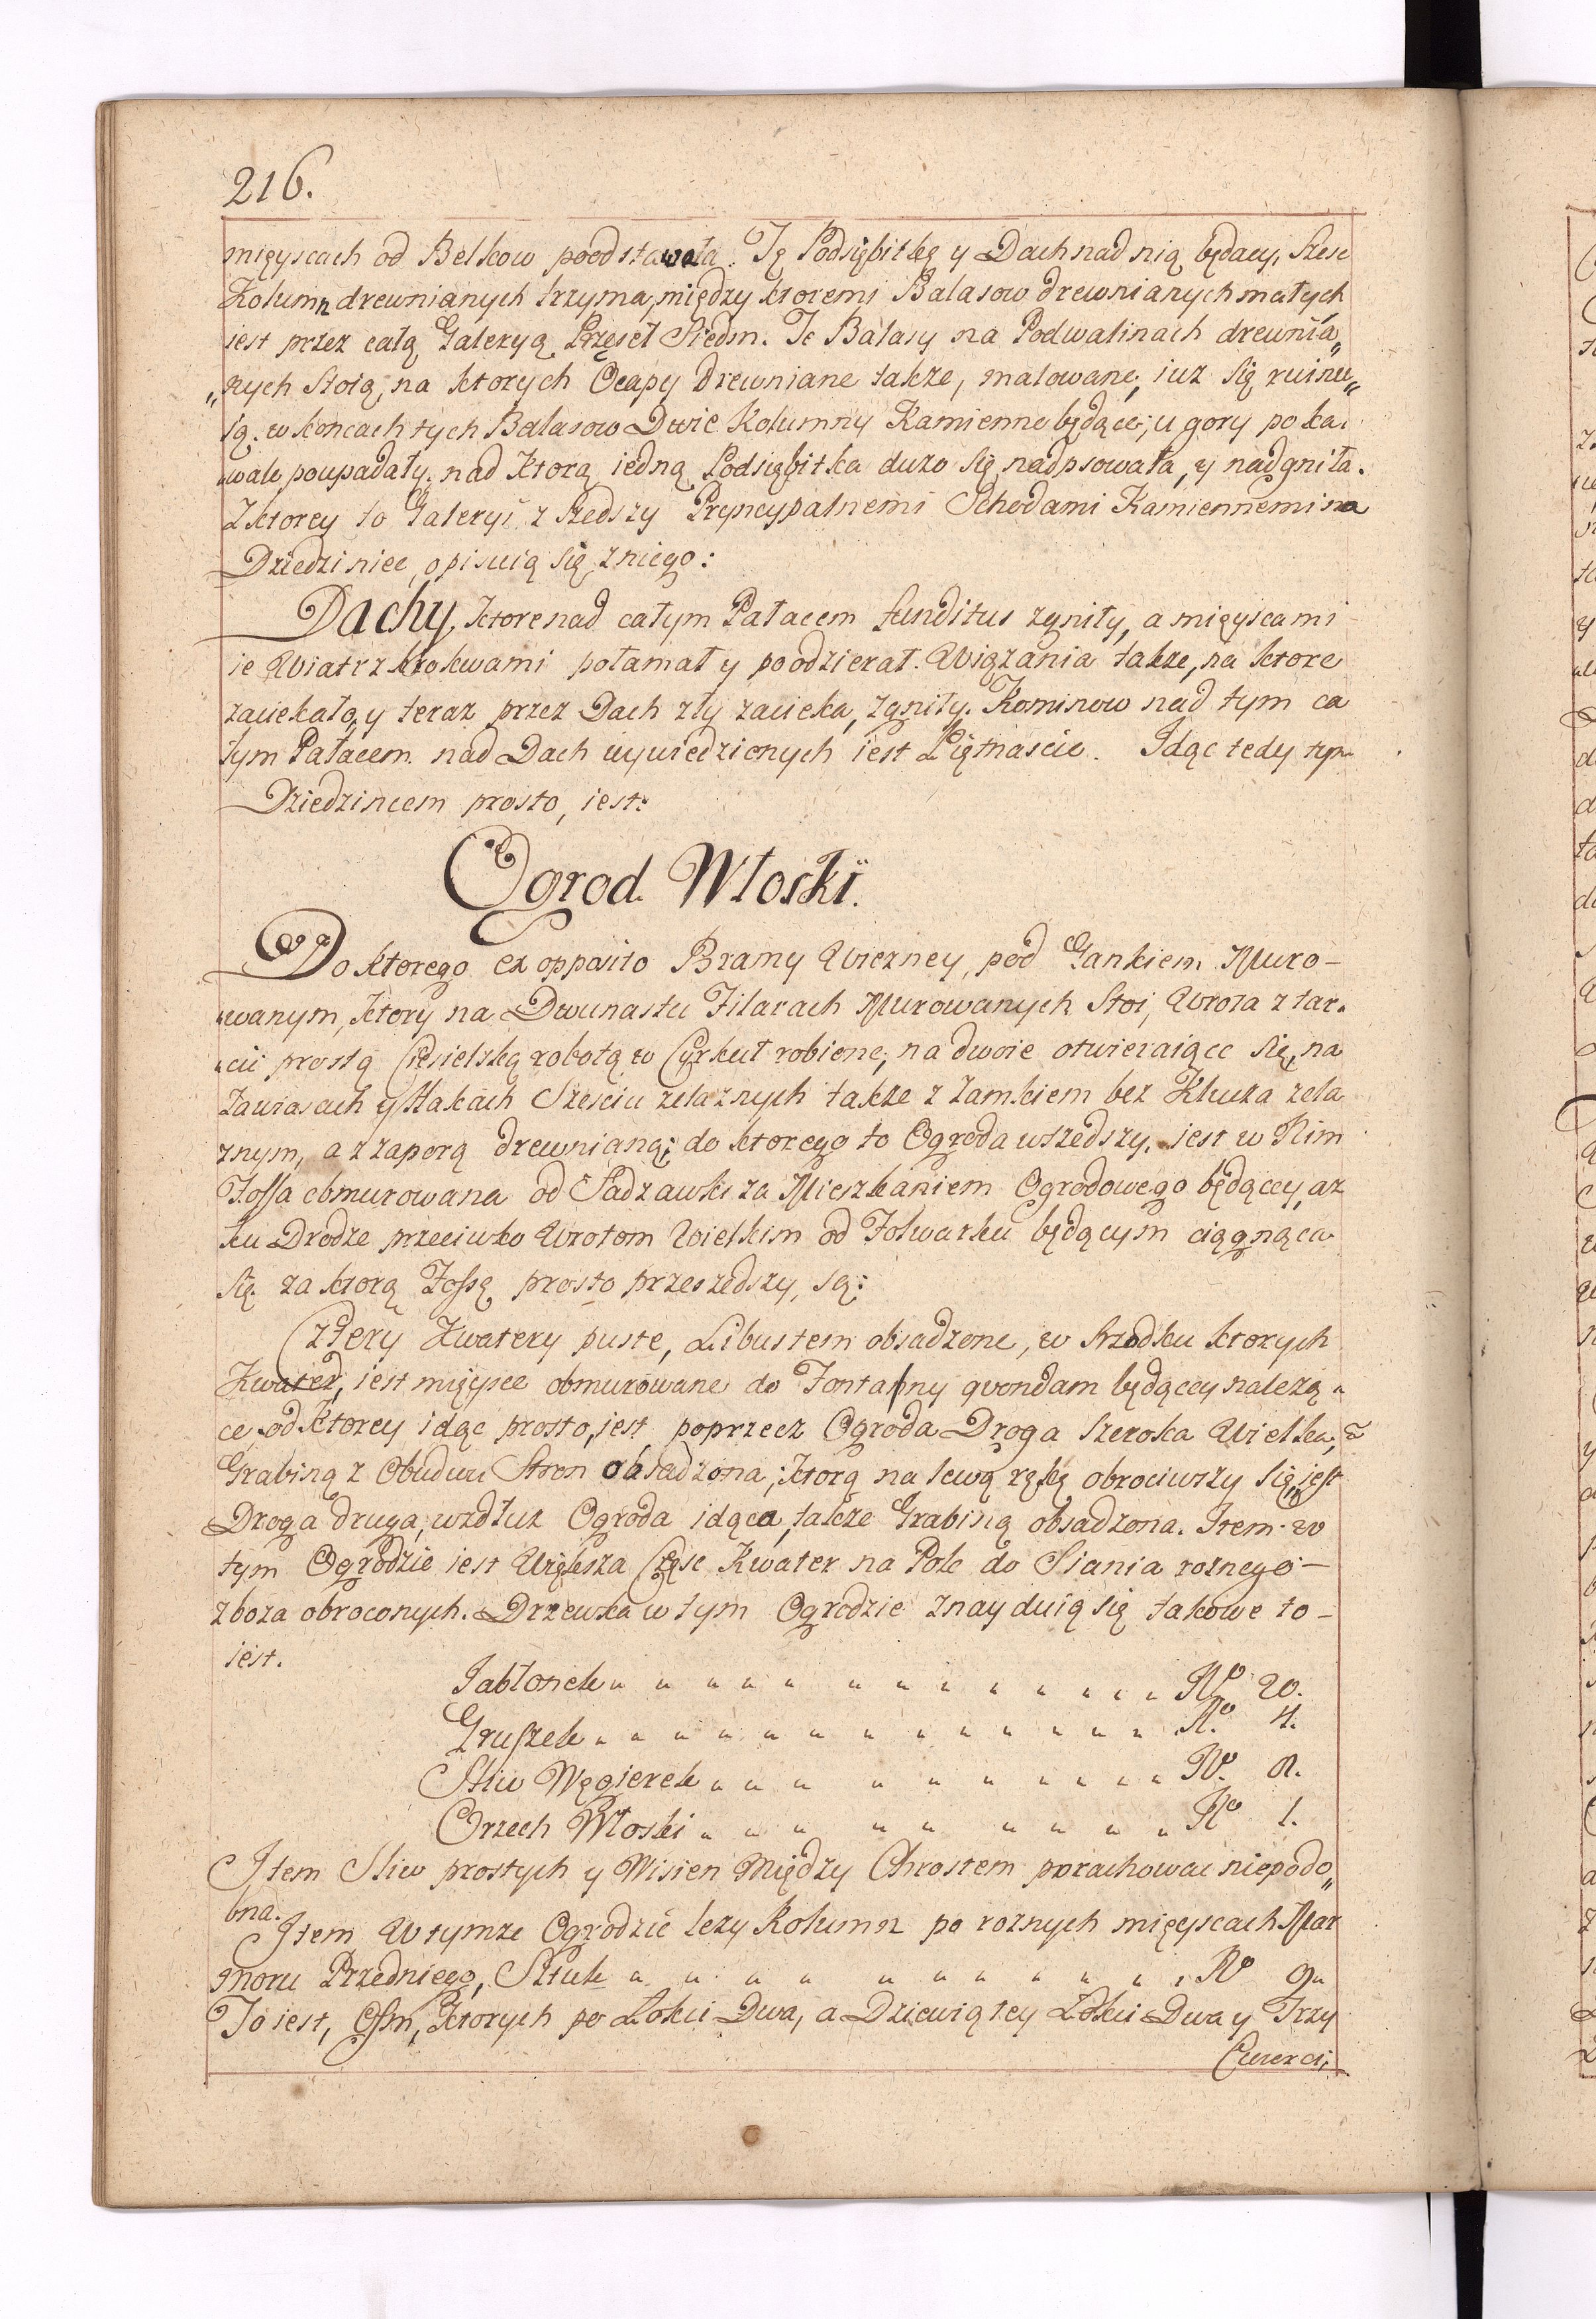 216.
mięyscach od Belkow poodstawała. Tę Podsiębitkę y Dach nad nią będacy, Szesc
Kolumn drewnianych trzyma, między ktoremi Balasow drewnianych małych
iest przez całą Galeryą Przęseł Siedm. Te Balasy na Podwalinach drewnia„
„nych Stoią, na ktorych Ocapy Drewniane także, malowane, iuz się ruinu„
ią. w koncach tych Balasow Dwie Kolumny Kamienne będące; u gory po ka„
„wale poupadały, nad ktorą iedną Podsiębitka duzo się nadpsowała, y nadgniła.
Z ktorey to Galeryi z szedszy Pryncypalnemi Schodami Kamiennemi na
Dziedziniec, opisuią się z niego:
Dachy, ktore nad całym Pałacem funditus zgniły, a mięyscami
ie Wiatr z krokwami połamał y poodzierał. Wiązania także, na ktore
zaciekało, y teraz przez Dach zły zacieka, zgniły. Kominow nad tym ca
łym Pałacem nad Dach wywiedzionych iest Piętnascie. Idąc tedy tym
Dziedzincem prosto, iest:
Ogrod Włoski.
Do ktorego ex opposito Bramy Wiezney, pod Gankiem Muro-
„wanym, ktory na Dwunastu Filarach Murowanych Stoi, Wrota z tar„
„cic prostą Ciesielską robotą w Cyrkuł robione, na dwoie otwieraiące się, na
Zawiasach y Hakach Szesciu zelaznych także z Zamkiem bez Klucza zela
znym, a z zaporą drewnianą; do ktorego to Ogroda wszedszy, iest w Nim
Fossa obmurowana od Sadzawki za Mieszkaniem Ogrodowego będącey, az
ku Drodze przeciwko Wrotom Wielkim od Folwarku będącym ciągnąca
się. za ktorą Fossę prosto przeszedszy, są:
Cztery Kwatery puste, Libustem obsadzone, w srzodku ktorych
Kwater, iest mięysce obmurowane do Fontanny qvondam będącey nalezą„
ce od ktorey idąc prosto, iest poprzecz Ogroda Droga szeroka Wielka,
Grabiną z Obudwu Stron obsadzona; ktorą na lewą rękę obrociwszy się, iest
Droga druga, wzdłuz Ogroda idąca, także Grabiną obsadzona. Item w
tym Ogrodzie iest Większa Częsc Kwater na Pole do Siania roznego-
zboza obroconych. Drzewka w tym Ogrodzie znayduią się takowe to-
iest.
Jabłonek „ „ „ „ „ „ „ „ „ „ „ No 20.
Gruszek „ „ „ „ „ „ „ „ „ „ „ „ No. 4.
Sliw Węgierek „ „ „ „ „ „ „ „ „ No. 8.
Orzech Włoski „ „ „ „ „ „ „ „ „ No 1.
Item Sliw prostych y Wisien Między Chrostem porachowac niepodo„
bna.
Item W tymze Ogrodzie lezy Kolumn po roznych mięyscach Mar
moru Przedniego, Sztuk „ „ „ „ „ „ „ „ „ „ No 9„
To iest, Osm, ktorych po Łokci Dwa, a Dziewiątey Łokci Dwa y Trzy
Cwerci;